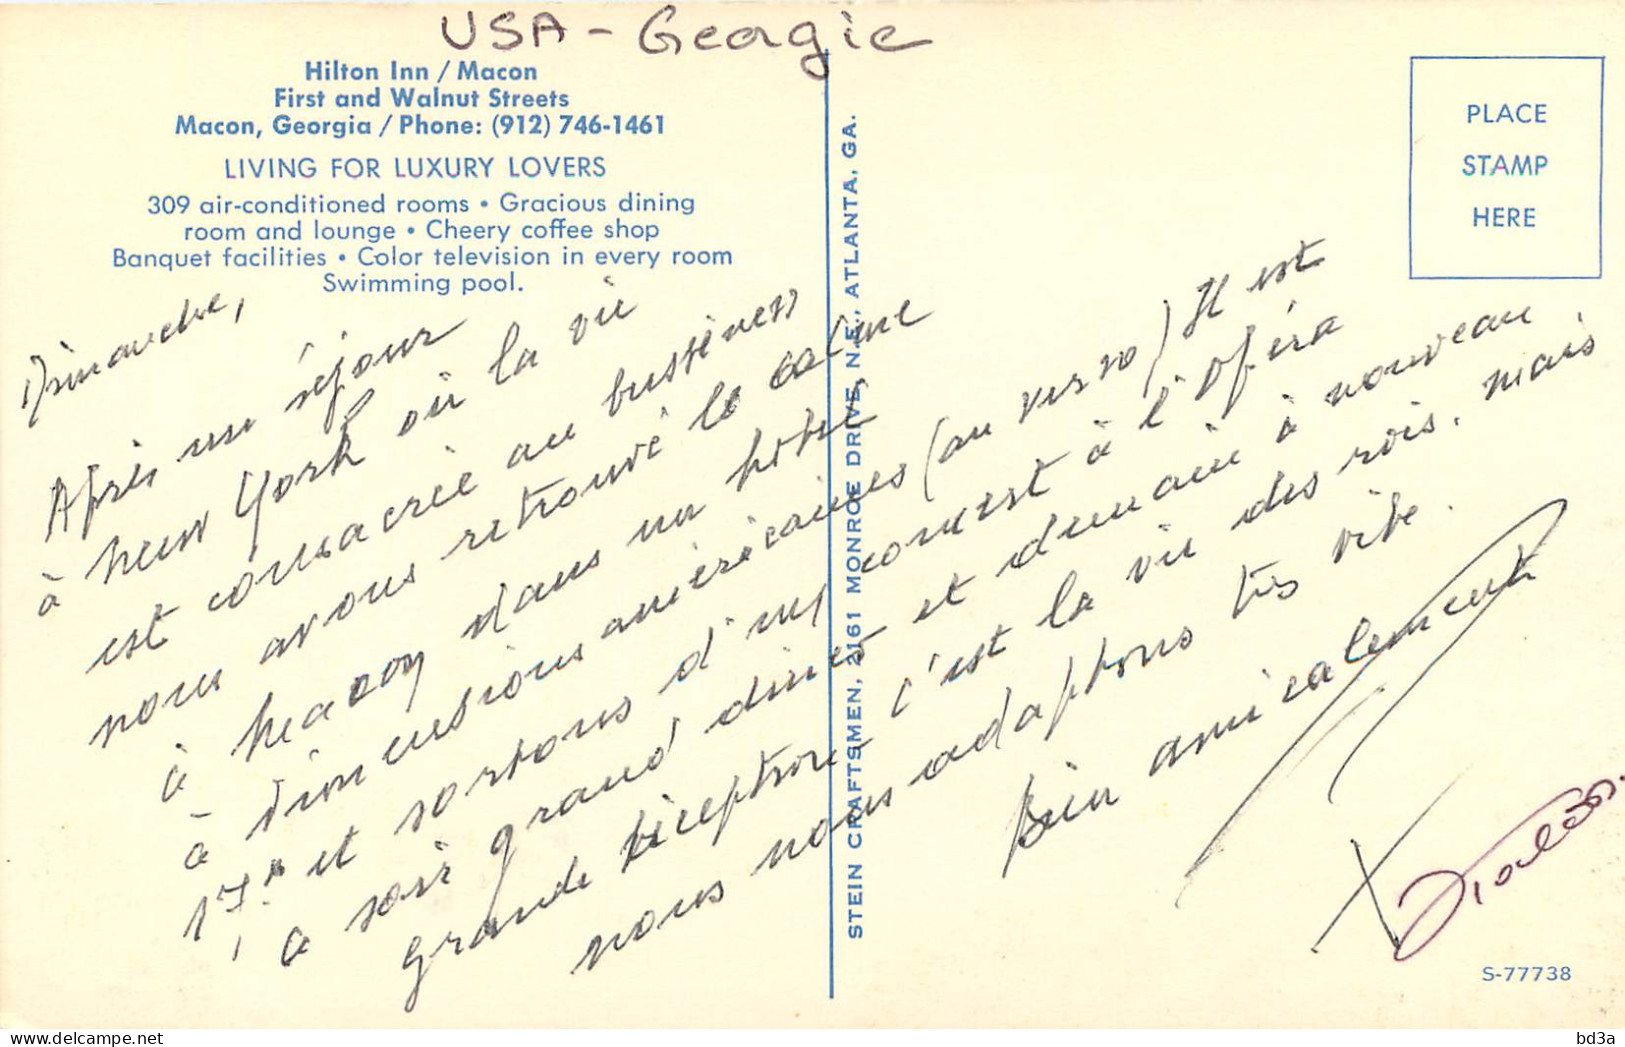 USA - Georgie
Hilton Inn / Macon
First and Walnut Streets
Macon, Georgia / Phone: (912) 746-1461
LIVING FOR LUXURY LOVERS
309 air-conditioned rooms • Gracious dining
room and lounge • Cheery coffee shop
Banquet facilities • Color television in every room
Swimming pool.
PLACE
STAMP
HERE
STEIN CRAFTSMEN, 2161 MONROE DRIVE, N.E., ATLANTA, GA.
Dimanche,
Après un séjour
à New York où la vie
est consacrée au bussiness
nous avons retrouvé le calme
à Macon dans un hôtel,
à dimensions américaines (au verso) Il est
17h et sortons d'un concert à l'Opéra
à soir grand dîner et demain à nouveau
grande réception c'est la vie des rois. mais
nous nous adaptons très vite.
bien amicalement
S-77738
bd3a